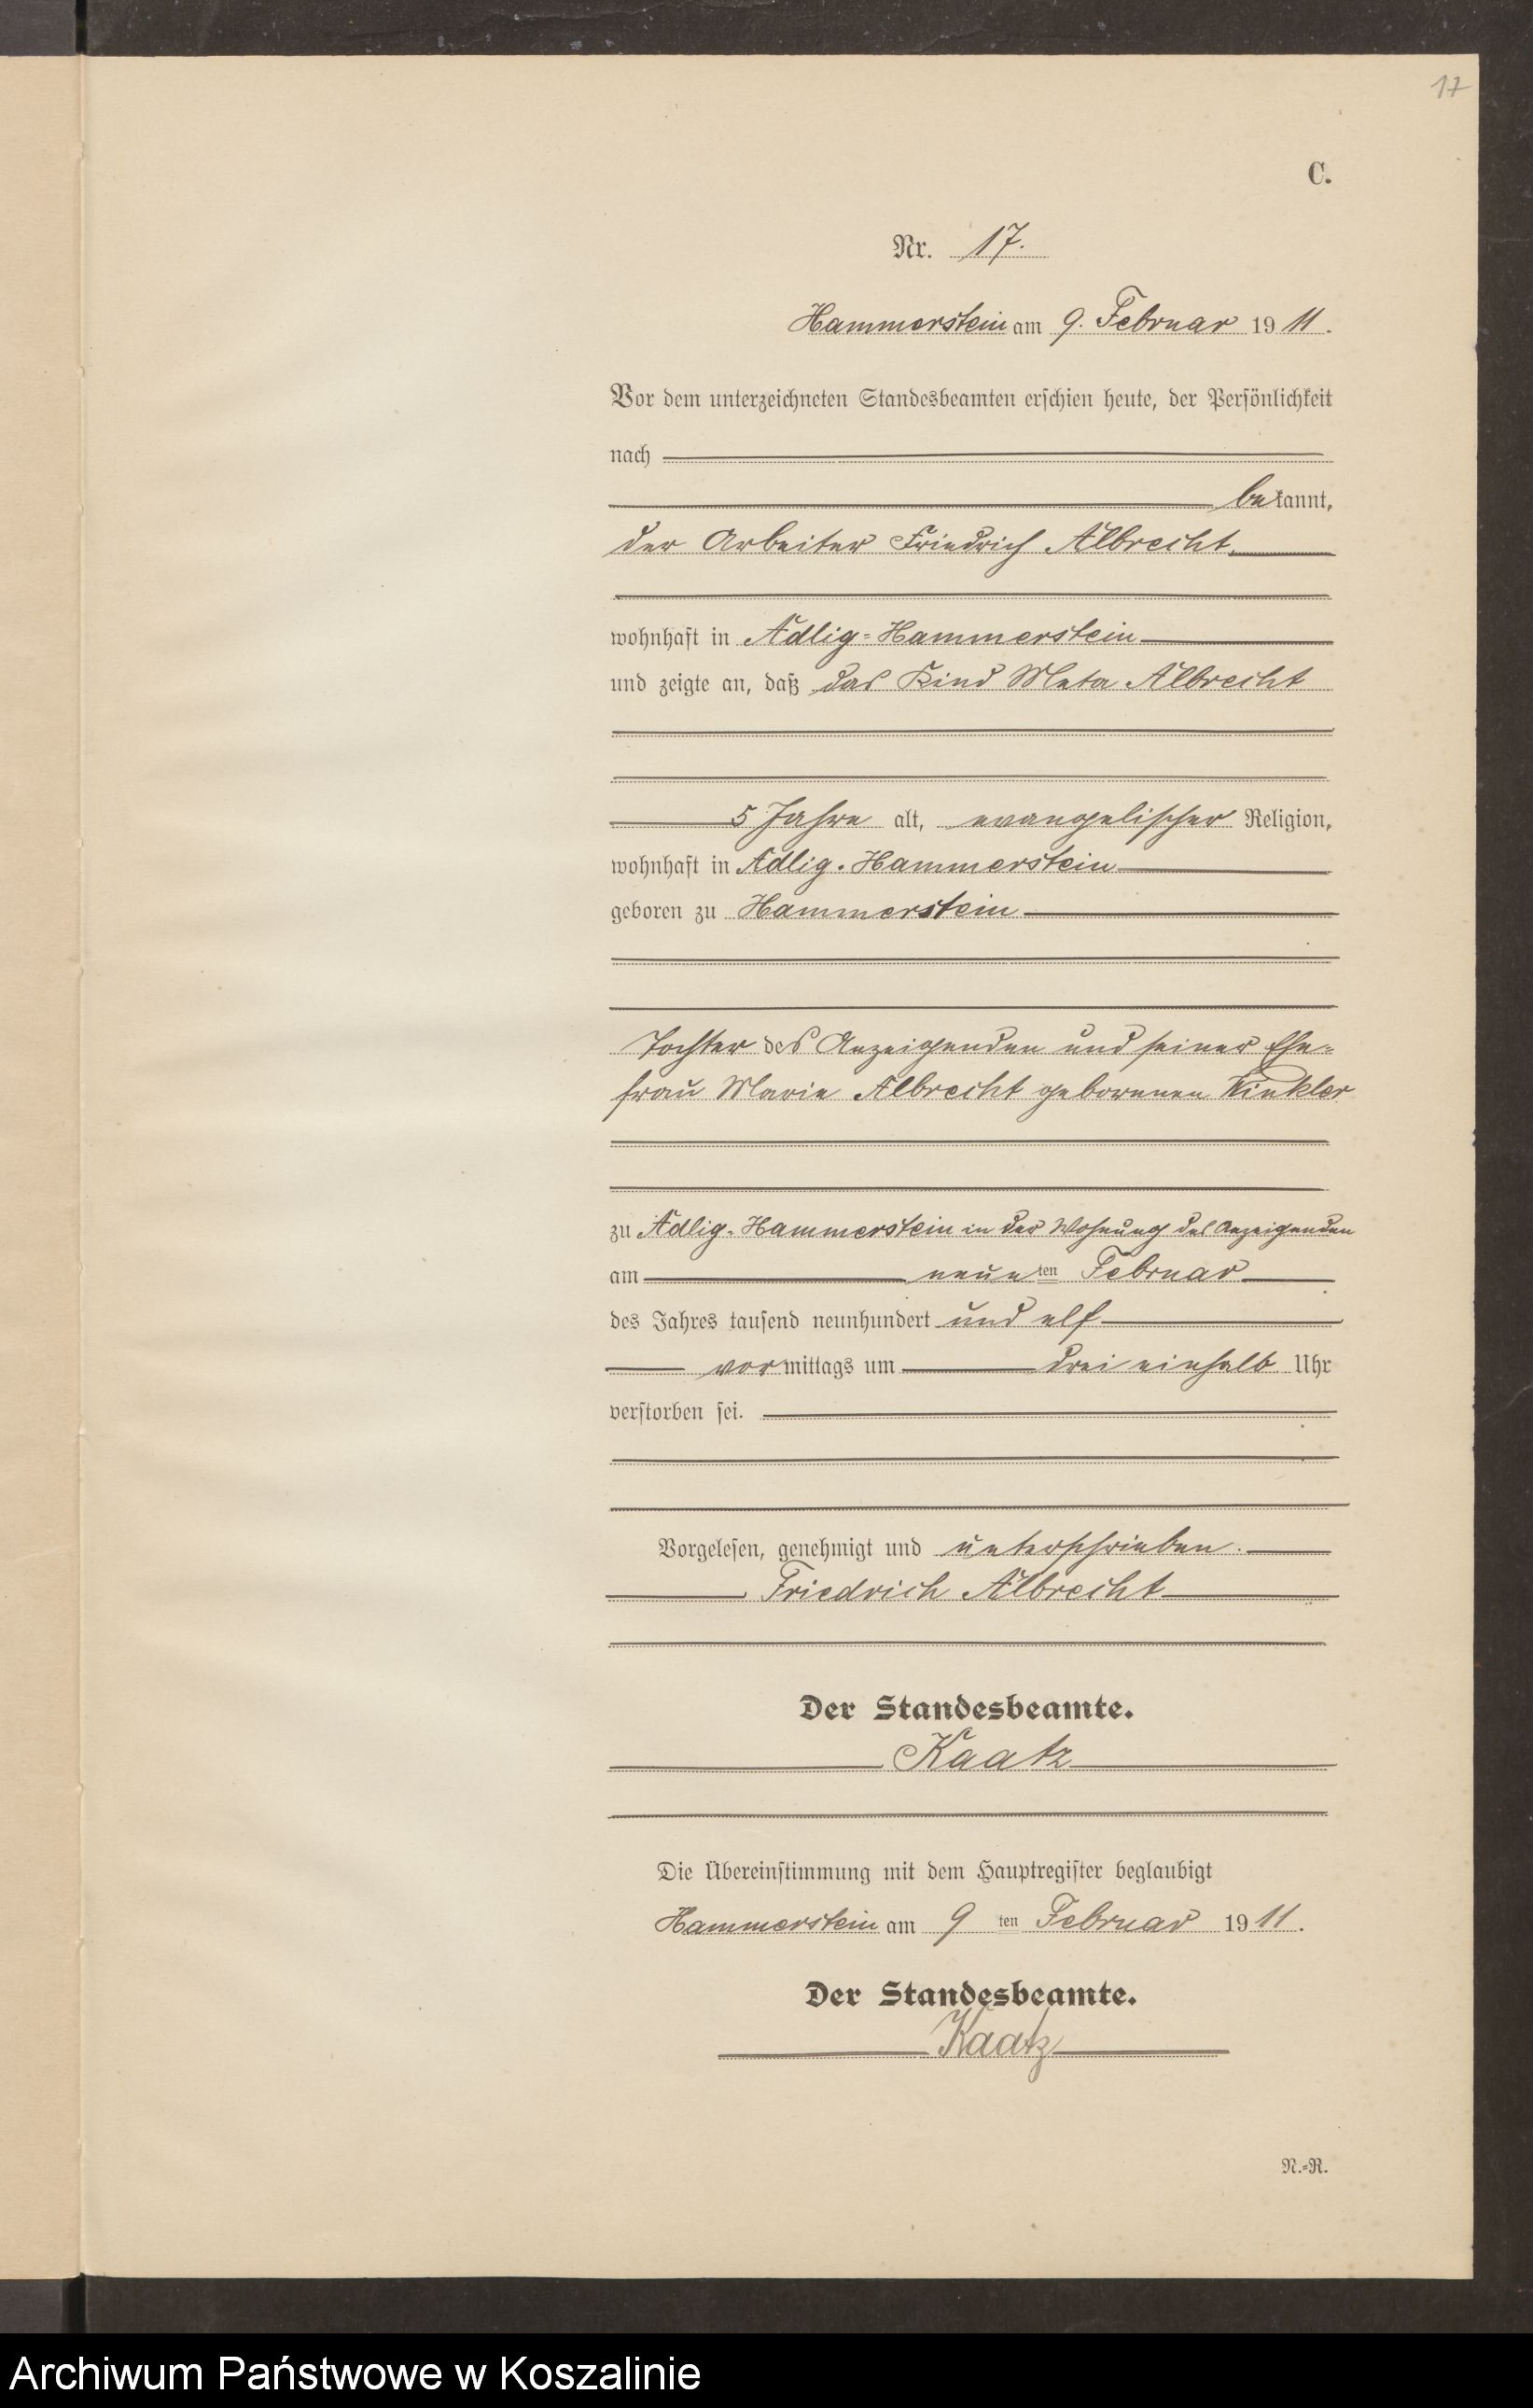 17
C.
Nr. 17.
Hammerstein am 9. Februar 1911.
Vor dem unterzeichneten Standesbeamten erschien heute, der Persönlichkeit
nach
bekannt,
der Arbeiter Friedrich Albrecht,
wohnhaft in Adlig-Hammerstein
und zeigte an, daß das Kind Meta Albrecht
5 Jahre alt, evangelischer Religion,
wohnhaft in Adlig-Hammerstein
geboren zu Hammerstein
Tochter des Anzeigenden und seiner Ehe-
frau Marie Albrecht geborenen Kinkler
zu Adlig-Hammerstein in der Wohnung des Anzeigenden
am neunten Februar
des Jahres tausend neunhundert und elf
vormittags um drei einhalb Uhr
verstorben sei.
Vorgelesen, genehmigt und unterschrieben.
Friedrich Albrecht
Der Standesbeamte.
Kaatz
Die Übereinstimmung mit dem Hauptregister beglaubigt
Hammerstein am 9ten Februar 1911.
Der Standesbeamte.
Kaatz
N.-R.
Archiwum Państwowe w Koszalinie